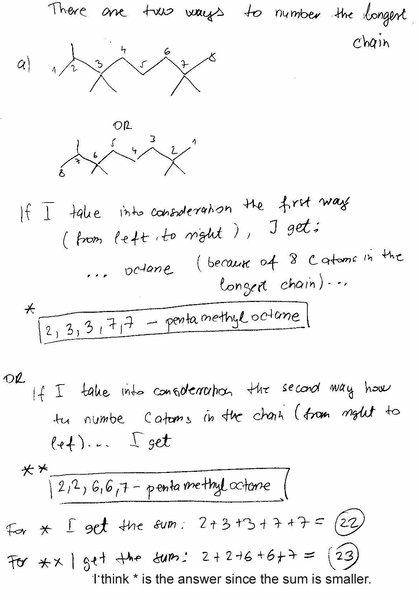 There are two ways to number the longest
chain
a)
1 2 3 4 5 6 7 8
OR
8 7 6 5 4 3 2 1
If I take into consideration the first way
(from left to right), I get:
... octane (because of 8 C atoms in the
longest chain)...
*
2,3,3,7,7 - pentamethyloctane
OR
If I take into consideration the second way how
to numbe C atoms in the chain (from right to
left)... I get
**
2,2,6,6,7 - pentamethyloctane
For * I get the sum: 2+3+3+7+7= 22
For ** I get the sum: 2+2+6+6+7= 23
I think * is the answer since the sum is smaller.